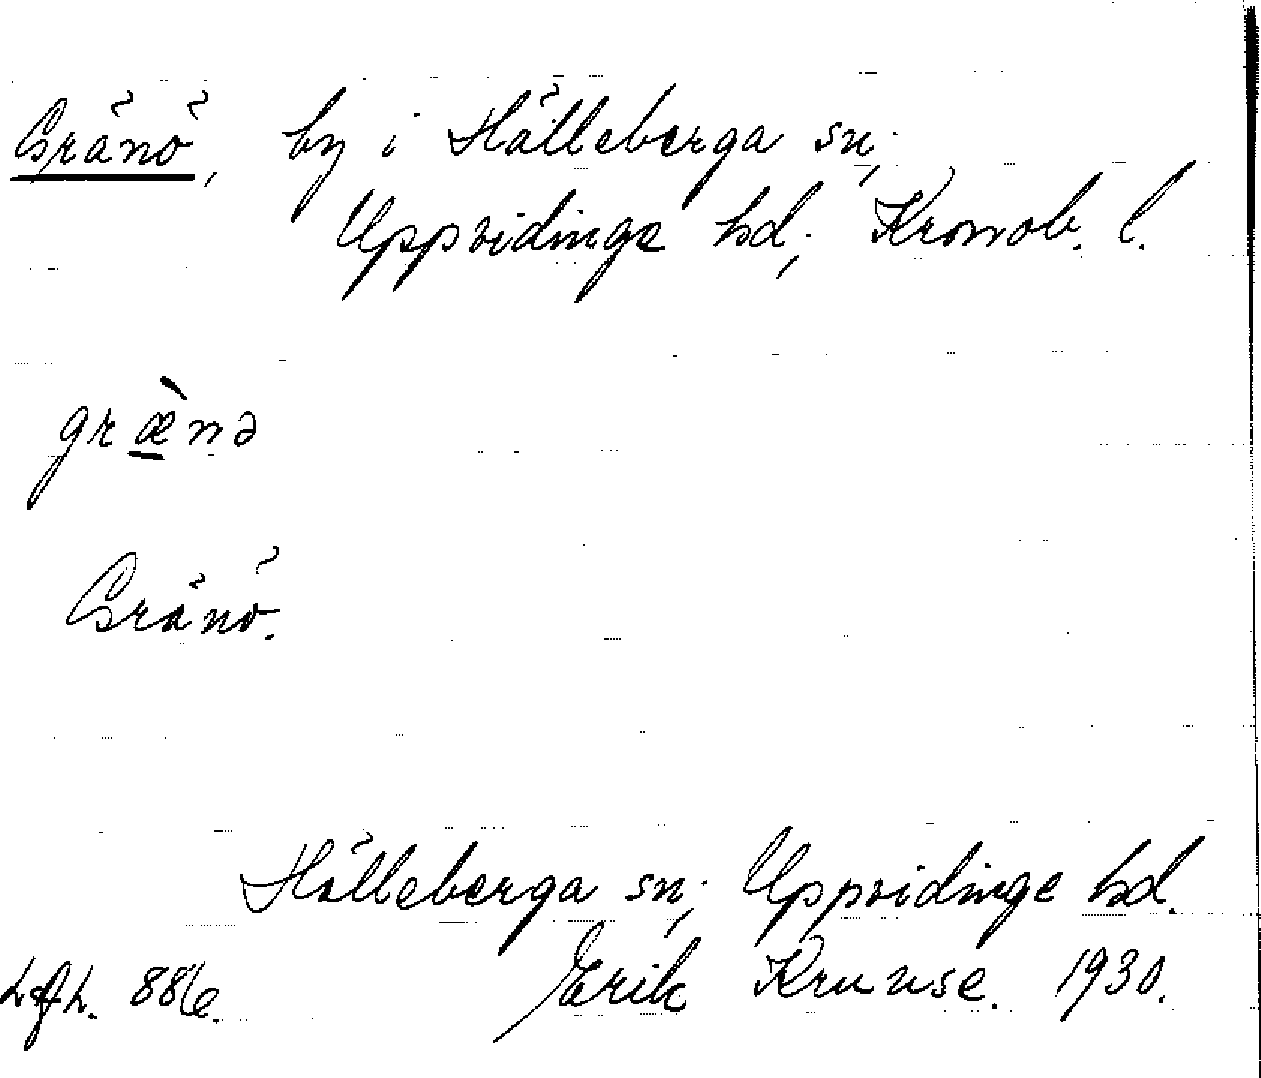 Gränö, by i Hälleberga sn.,
Uppvidinge hd., Kronob. l.
græ̀nə
Gränö.
Hälleberga sn., Uppvidinge hd.
886. Erik Kruuse. 1930.